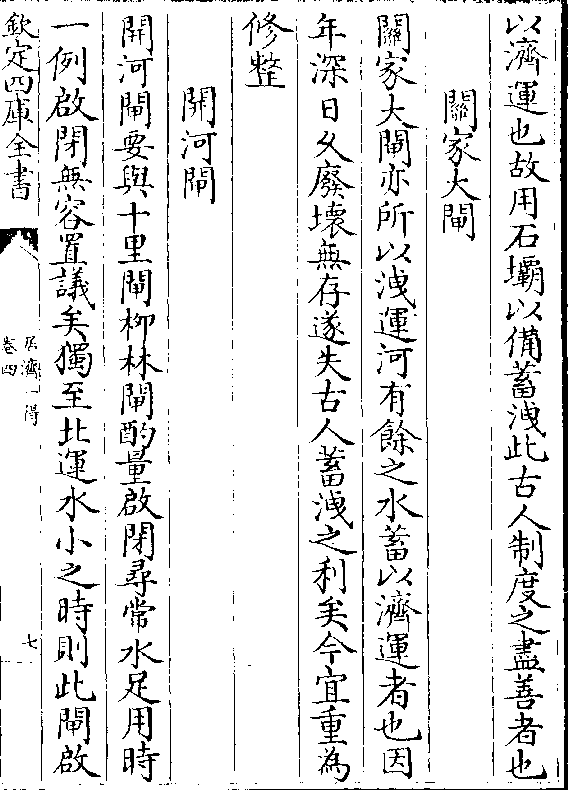 以濟運也故用石壩以備蓄洩此古人制度之盡善者也
關家大閘
關家大閘亦所以洩運河有餘之水蓄以濟運者也因
年深日久廢壞無存遂失古人蓄洩之利矣今宜重為
修整
開河閘
開河閘要與十里閘柳林閘酌量啟閉尋常水足用時
一例啟閉無容置議矣獨至北運水小之時則此閘啟
欽定四庫全書
居濟一得
卷四
七